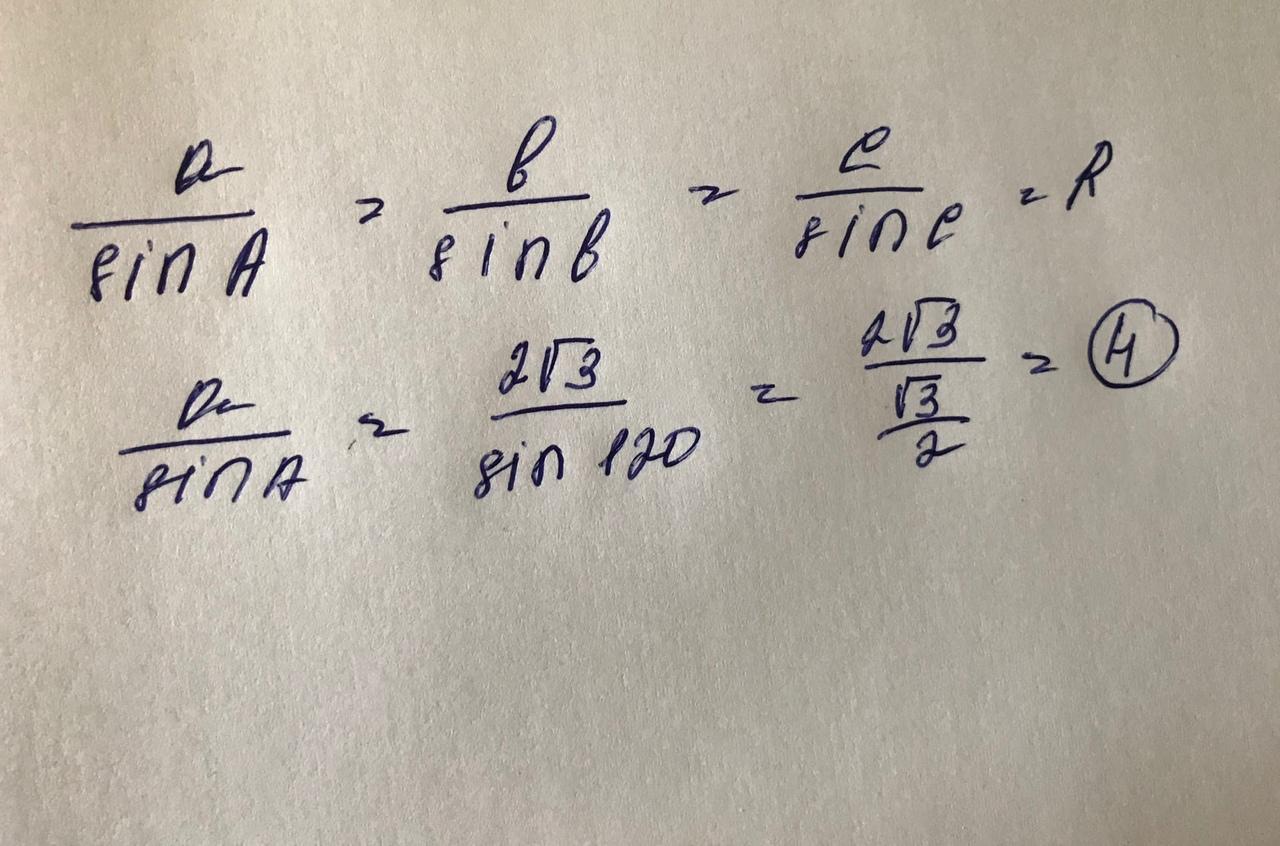 a/sin A = b/sin B = c/sin C = R
a/sin A = 2√3/sin 120 = 2√3/(√3/2) = 4